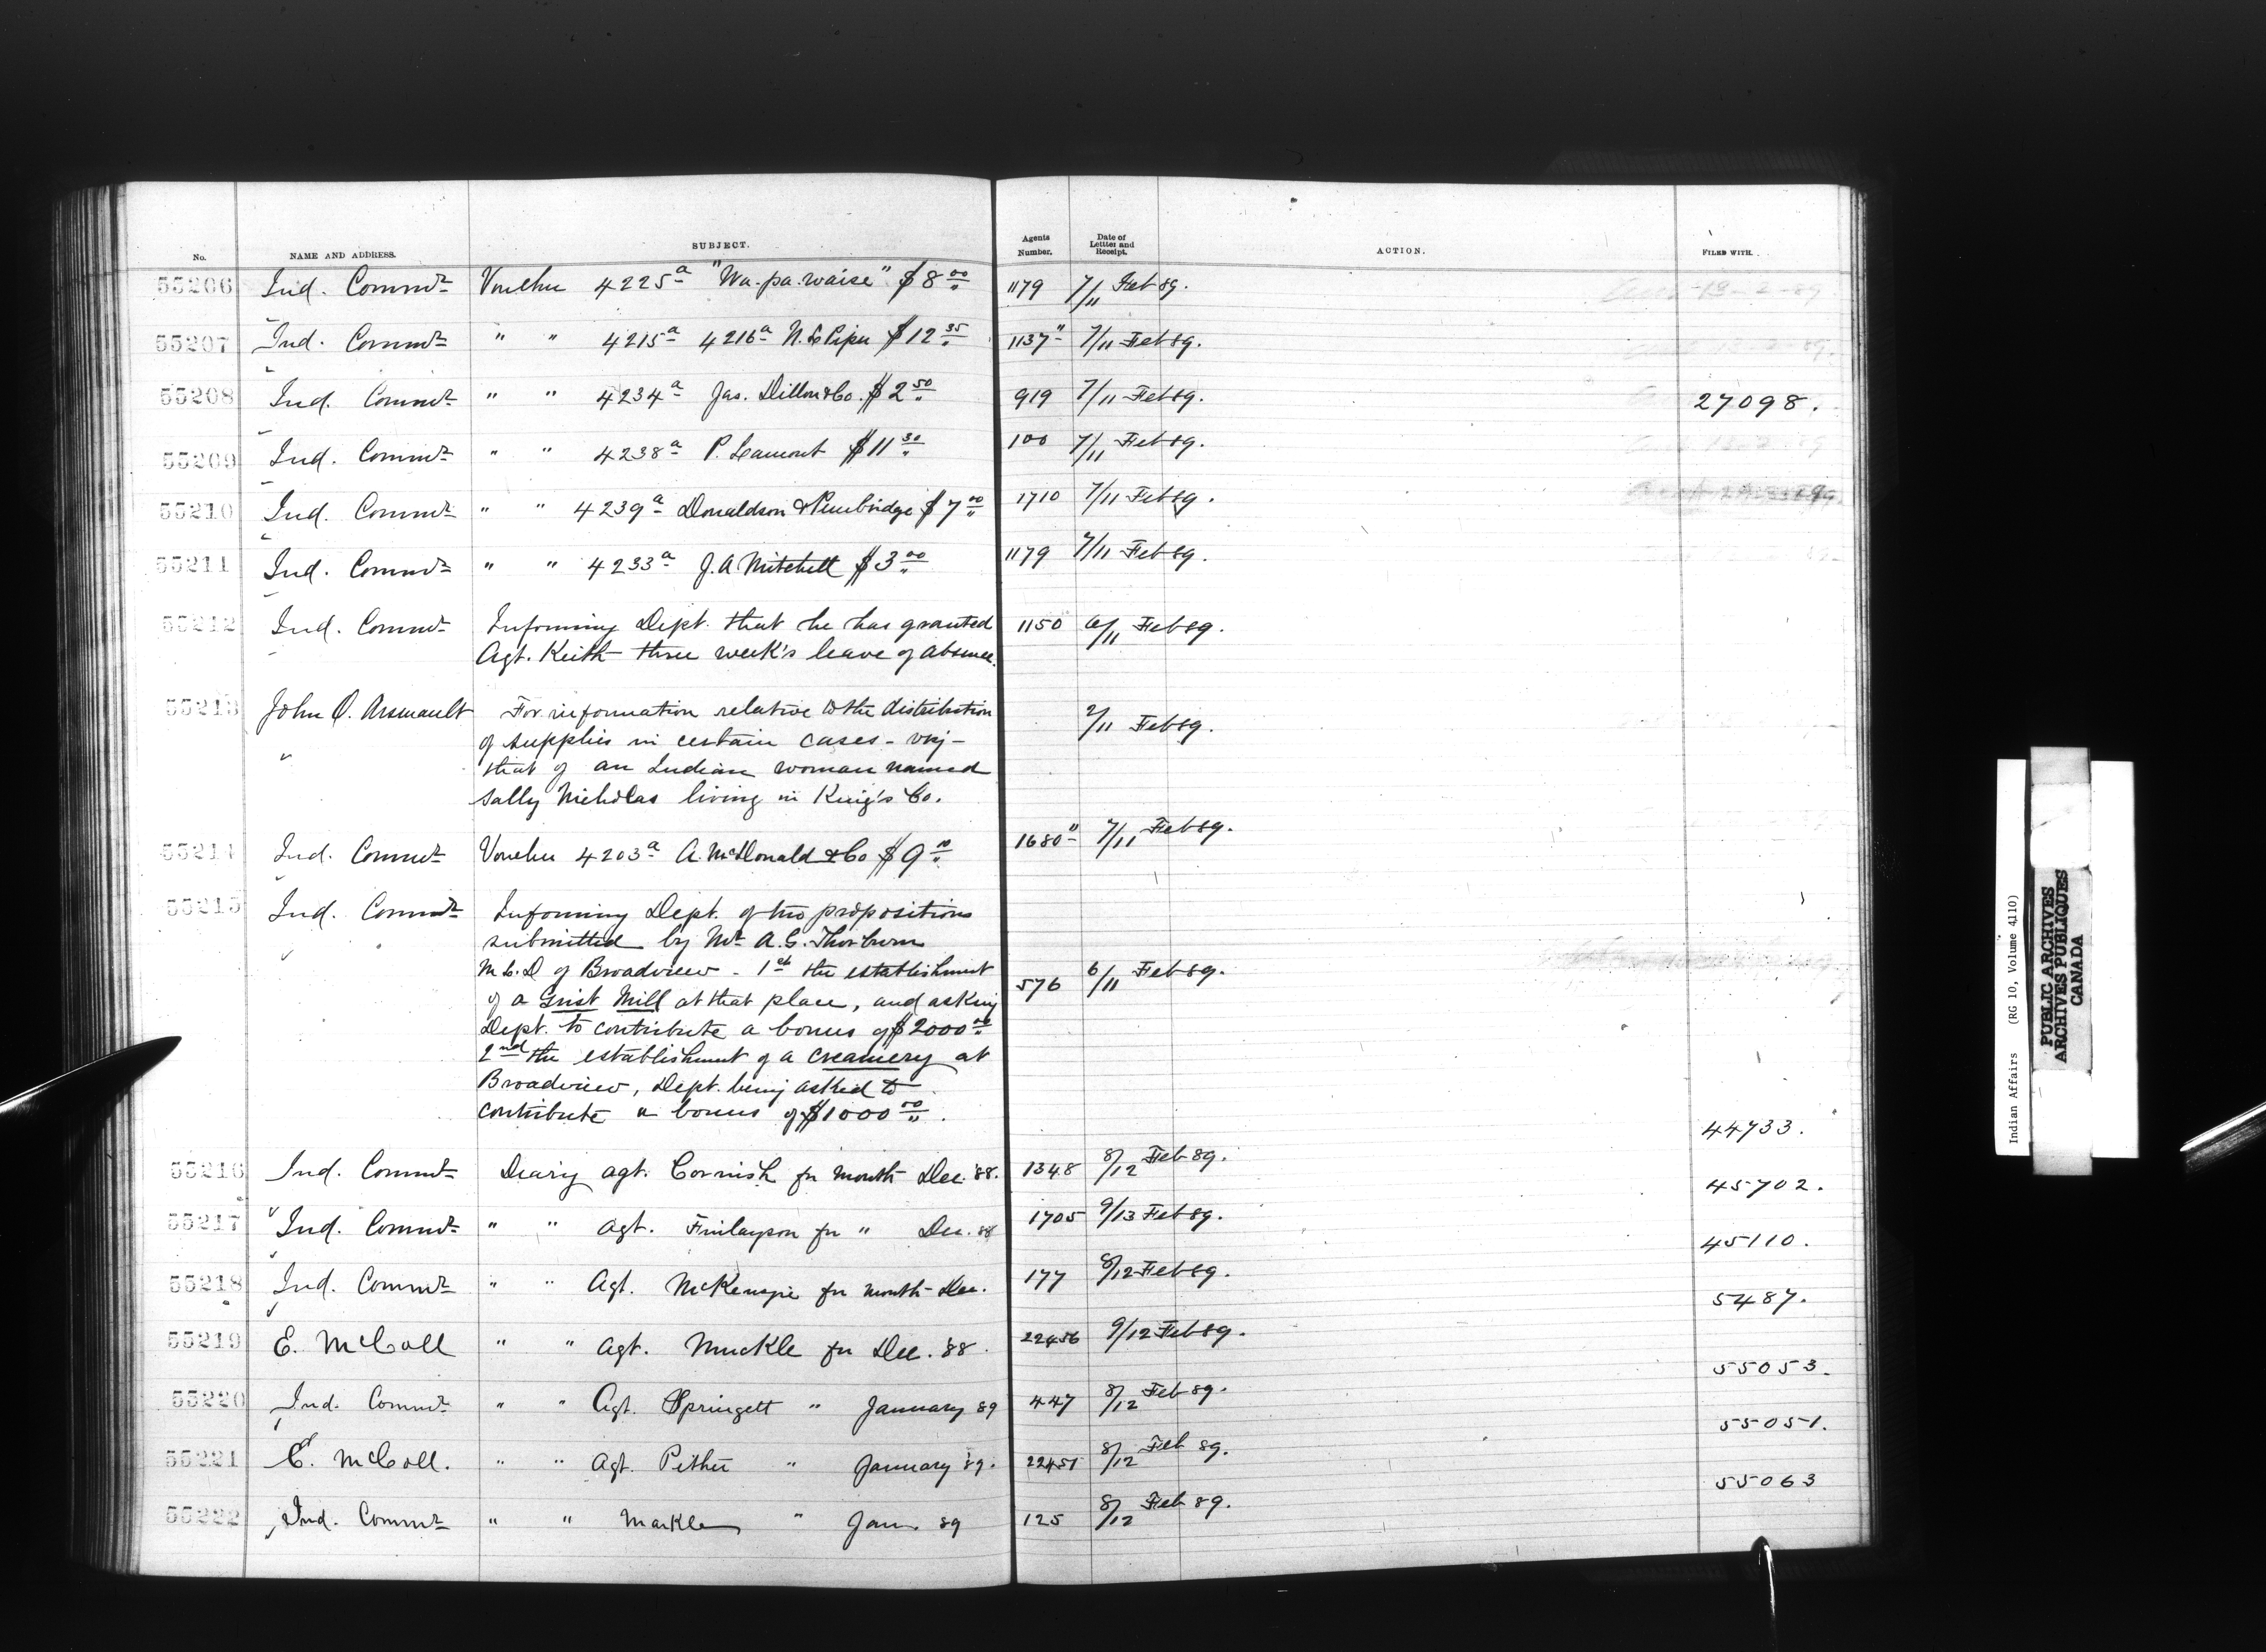 No. NAME AND ADDRESS. SUBJECT. Agents Number. Date of Letter and Receipt. ACTION. FILED WITH.
55206 Ind. Commr Voucher 4225a "Wa-pa-waise" $8.00 1179 7/11 Feb 89.
55207 Ind. Commr " " 4215a 4216a N. L. Piper $12.35 1137" 7/11 Feb 89.
55208 Ind. Commr " " 4234a Jas. Dillon & Co. $2.50 919 7/11 Feb 89. 27098.
55209 Ind. Commr " " 4238a P. Lamont $11.30 100 7/11 Feb 89.
55210 Ind. Commr " " 4239a Donaldson & $7.00 1710 7/11 Feb 89.
55211 Ind. Commr " " 4233a J. A. Mitchell $3.00 1179 7/11 Feb 89.
55212 Ind. Commr Informing Dept. that he has granted 1150 6/11 Feb 89.
Agt. Keith three week's leave of absence.
55213 John O. Arsenault For information relative to the distribution 2/11 Feb 89.
of supplies in certain cases - viz -
that of an Indian woman named
Sally Nicholas living in King's Co.
55214 Ind. Commr Voucher 4203a A. McDonald & Co $9.10 1680" 7/11 Feb 89.
55215 Ind. Commr Informing Dept. of two propositions
submitted by Mr A. G. Thorburn
M.L.A of Broadview - 1st the establishment 576 6/11 Feb 89.
of a Grist Mill at that place, and asking
Dept. to contribute a bonus of $2000.00
2nd the establishment of a creamery at
Broadview, Dept. being asked to
contribute a bonus of $1000.00. 44733.
55216 Ind. Commr Diary Agt. Cornish for month Dec. '88. 1348 8/12 Feb 89. 45702.
55217 Ind. Commr " " Agt. Finlayson for " Dec. 88 1705 9/13 Feb 89. 45110.
55218 Ind. Commr " " Agt. McKenzie for month Dec. 177 8/12 Feb 89. 5487.
55219 E. McColl " " Agt. Muckle for Dec. '88. 22456 9/12 Feb 89. 55053.
55220 Ind. Commr " " Agt. Springett " January 89 447 8/12 Feb 89. 55051.
55221 E. McColl. " " Agt. Pither " January '89. 22451 8/12 Feb 89. 55063
55222 Ind. Commr " " Markle " Jan. 89 125 8/12 Feb 89.
Indian Affairs (RG 10, Volume 4110)
PUBLIC ARCHIVES
ARCHIVES PUBLIQUES
CANADA